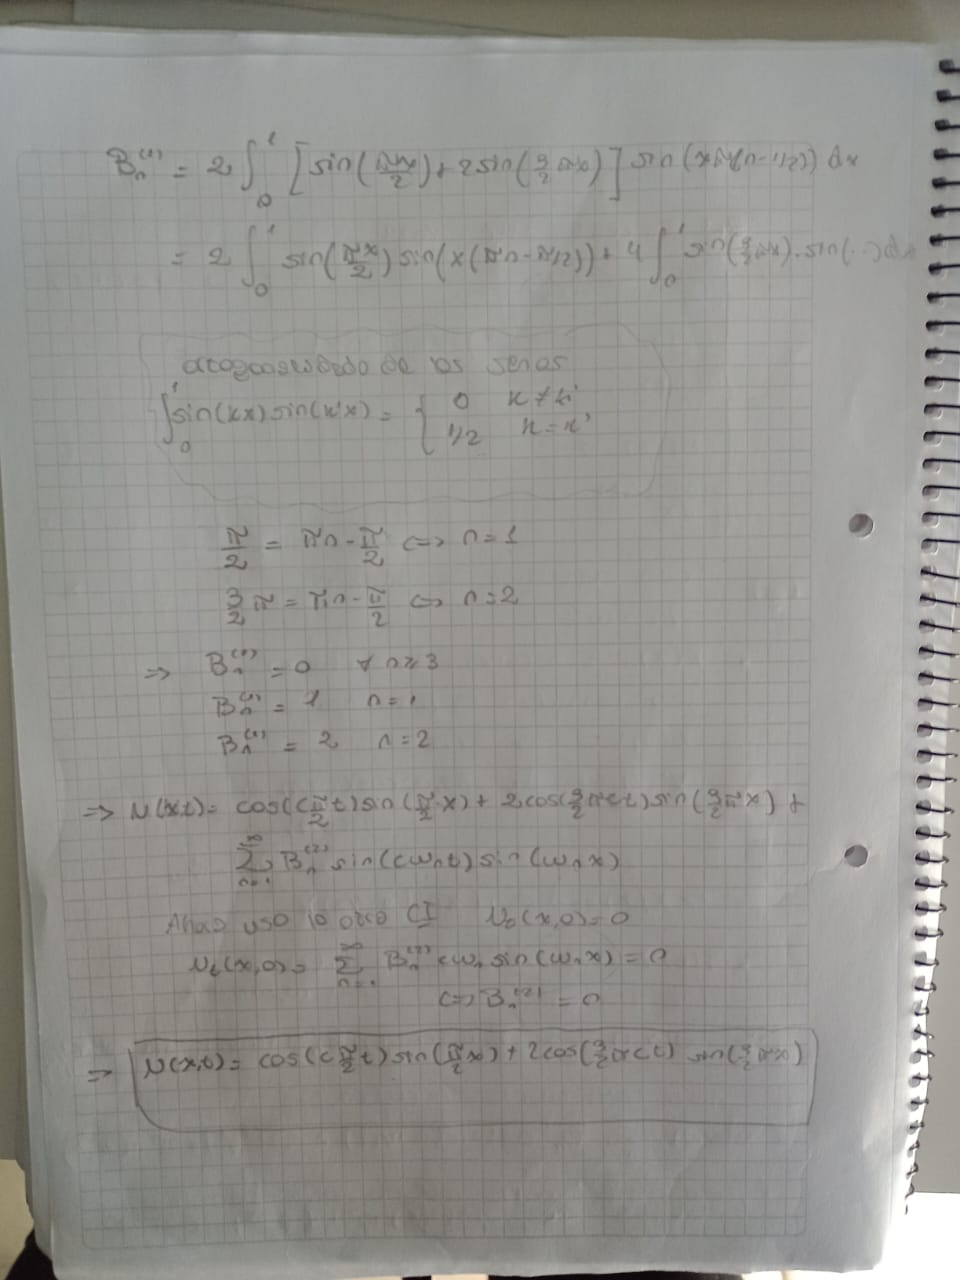 B_n^(1) = 2 ∫_0^1 [sin(πx/2) + 2 sin(3/2 πx)] sin(xπ(n-1/2)) dx
= 2 ∫_0^1 sin(πx/2) sin(x(πn-π/2)) + 4 ∫_0^1 sin(3/2 πx)·sin(...)dx
de los senos
∫_0^1 sin(kx) sin(k'x) = { 0 k≠k'
1/2 k=k'
π/2 = πn - π/2 <=> n=1
3/2 π = πn - π/2 <=> n=2
=> B_n^(1) = 0 ∀ n≥3
B_n^(1) = 1 n=1
B_n^(1) = 2 n=2
=> u(x,t) = cos(c π/2 t) sin(π/2 x) + 2cos(3/2 πct) sin(3/2 πx) +
∑_{n=1}^∞ B_n^(2) sin(cω_n t) sin(ω_n x)
Ahora uso la otra CI u_t(x,0)=0
u_t(x,0) = ∑_{n=1}^∞ B_n^(2) cω_n sin(ω_n x) = 0
<=> B_n^(2) = 0
=> u(x,t) = cos(c π/2 t) sin(π/2 x) + 2cos(3/2 πct) sin(3/2 πx)